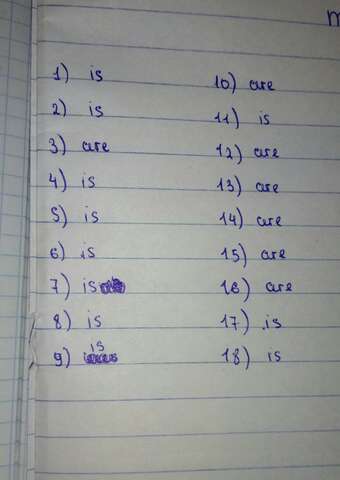 1) is
2) is
3) are
4) is
5) is
6) is
7) is
8) is
9) is
10) are
11) is
12) are
13) are
14) are
15) are
16) are
17) is
18) is